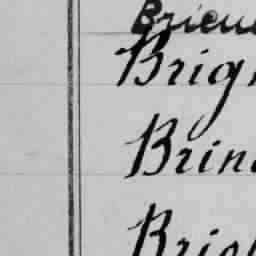 Brien
Brig
Brin
Bri